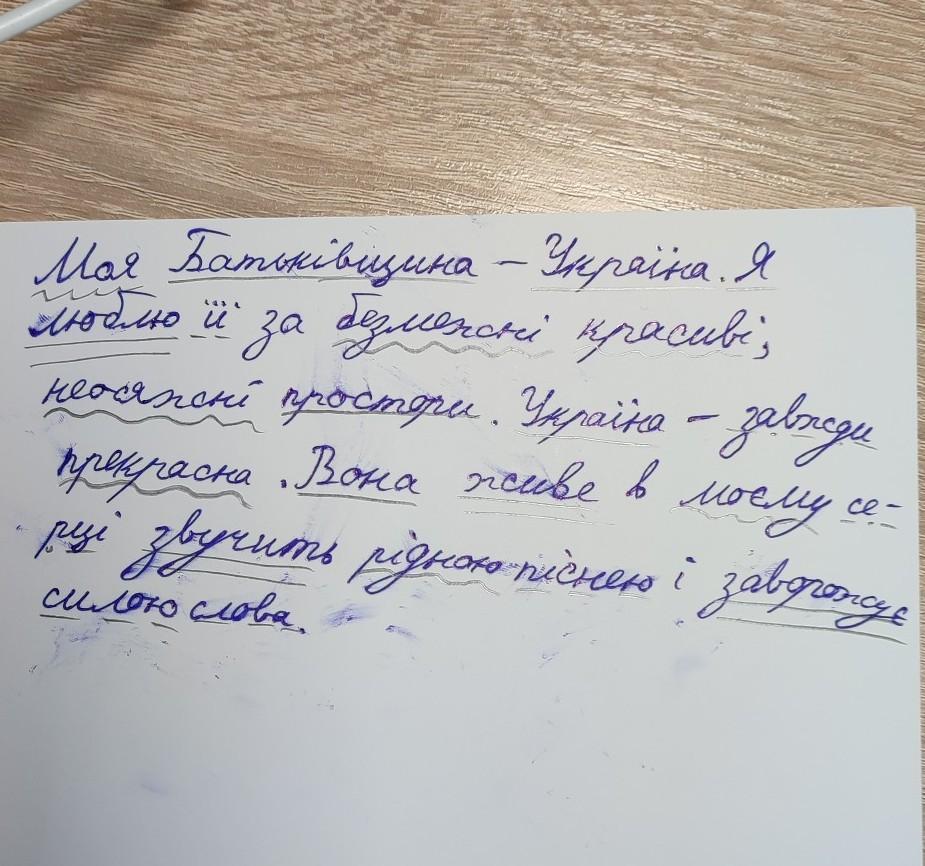 Моя Батьківщина – Україна. Я
люблю її за безмежні красиві,
неосяжні простори. Україна – завжди
прекрасна. Вона живе в моєму се-
рці звучить рідною піснею і заворожує
силою слова.